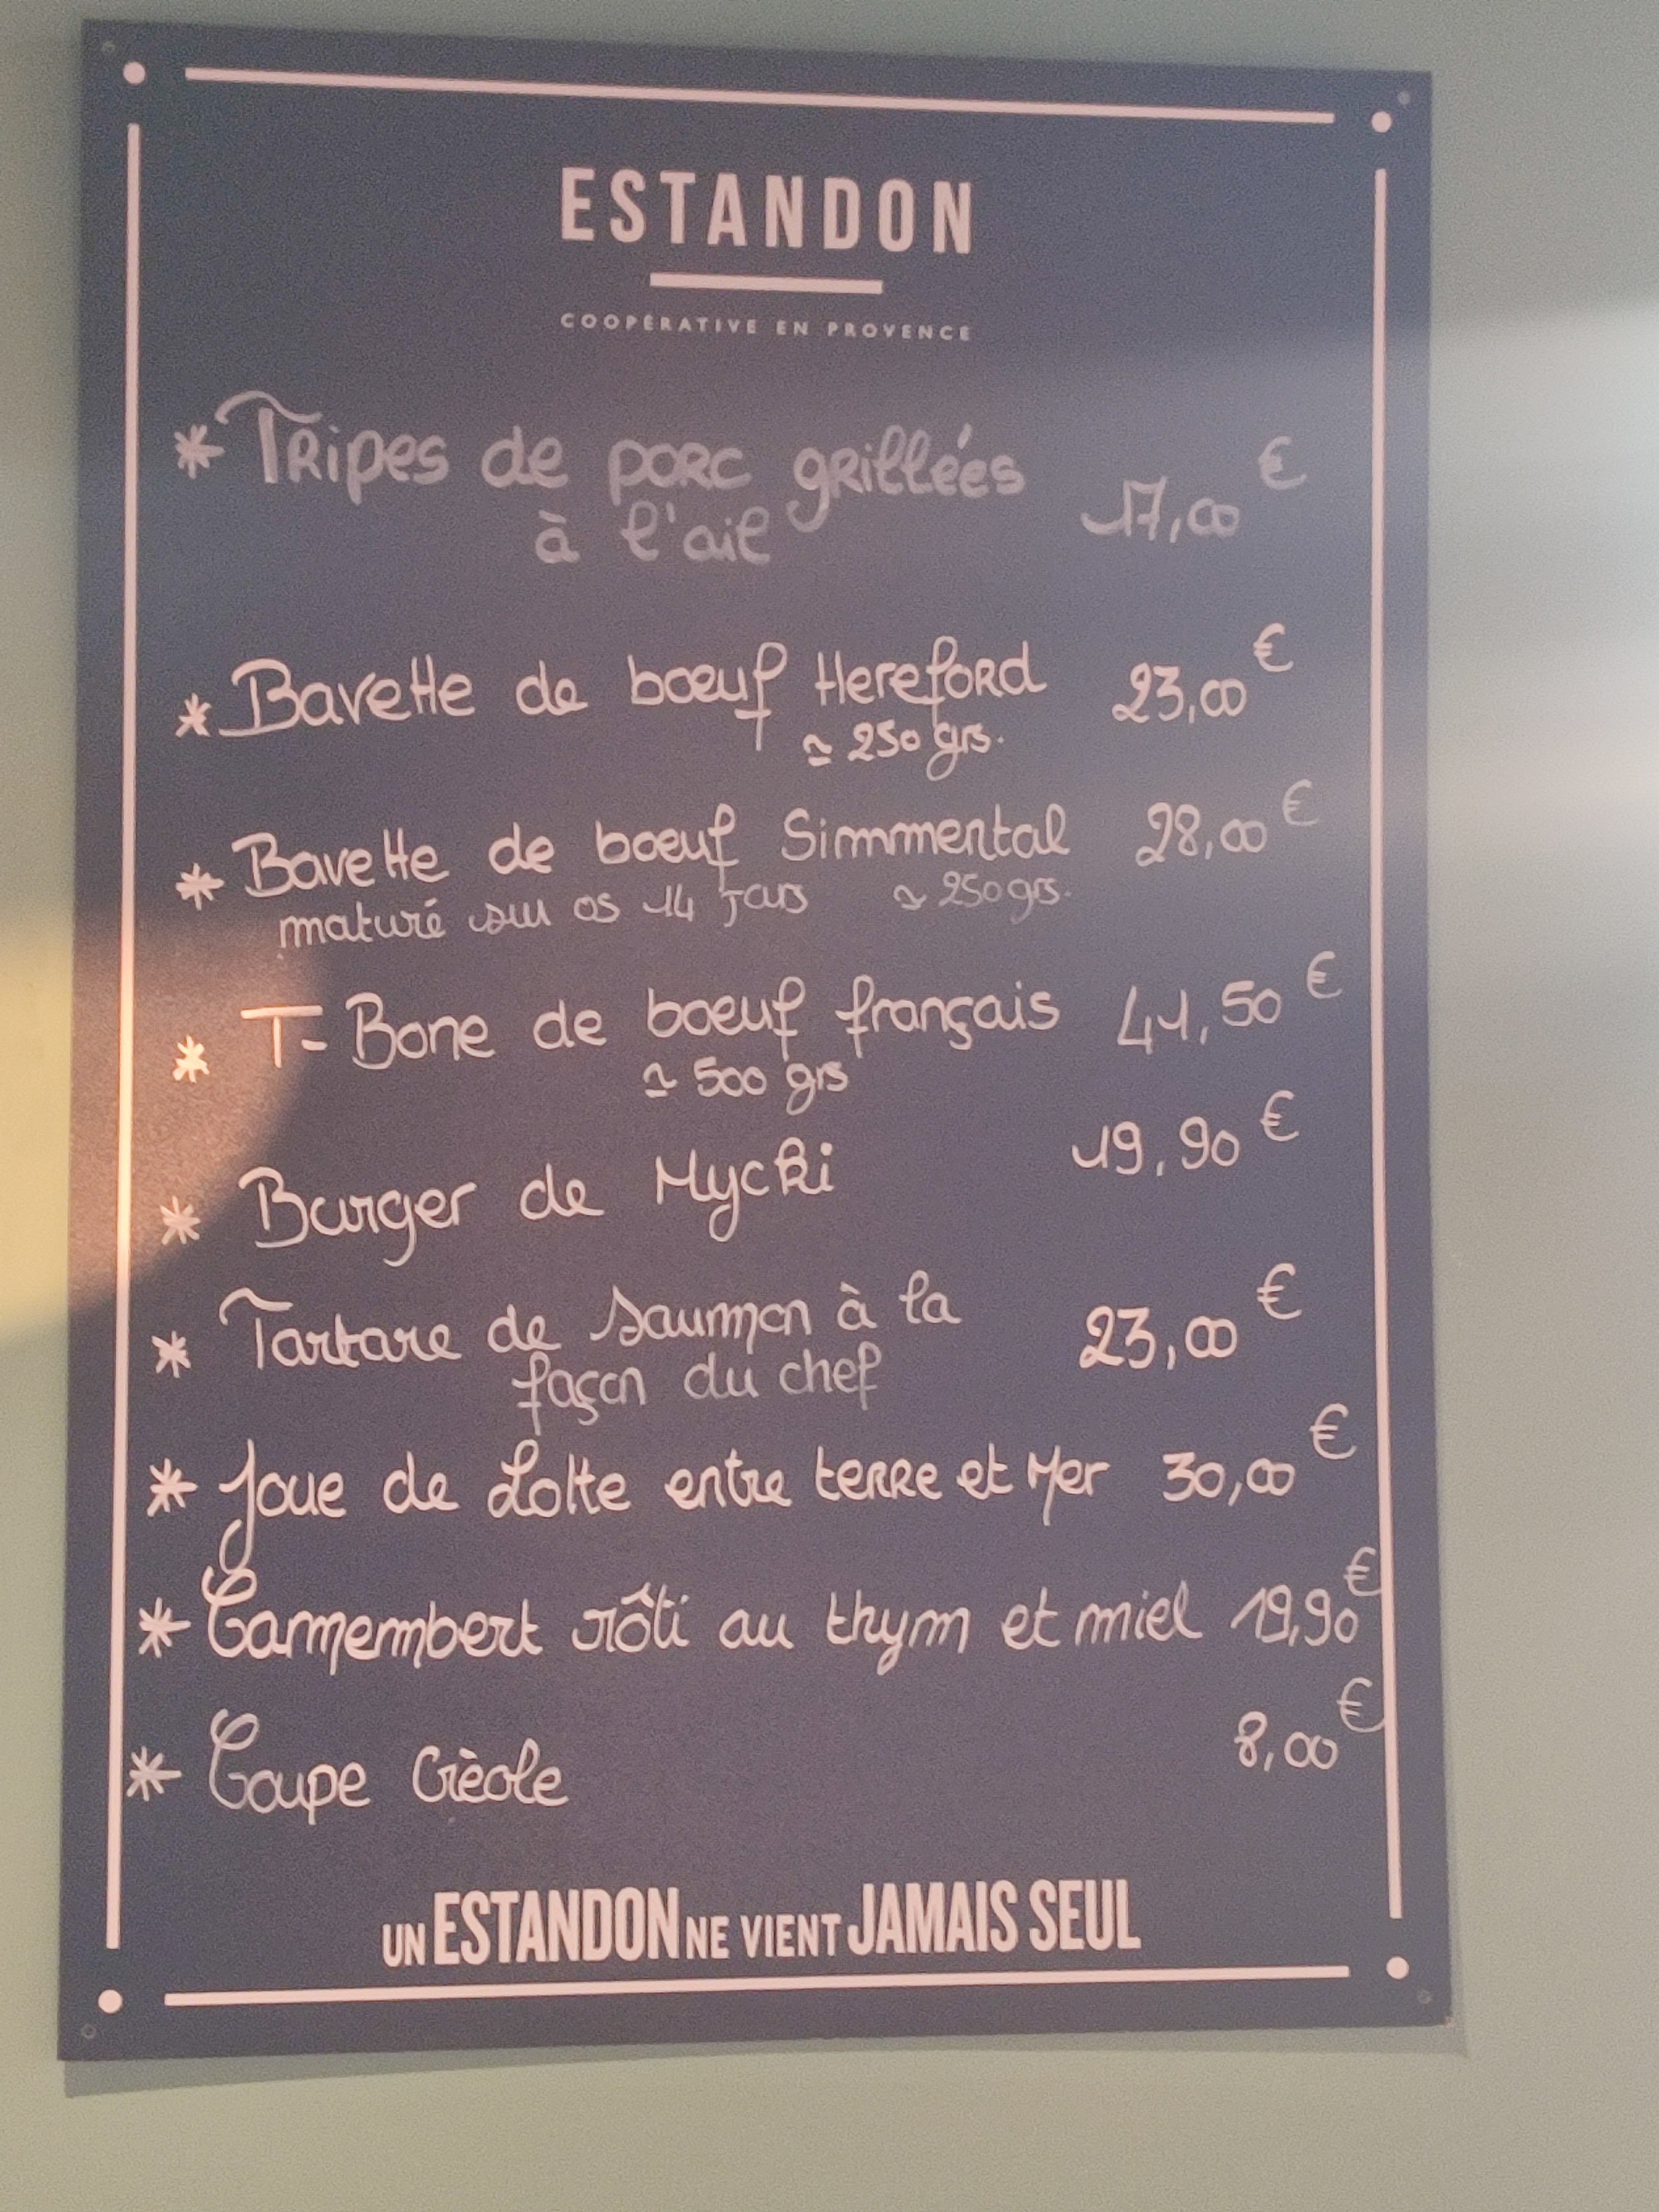 ESTANDON
COOPÉRATIVE EN PROVENCE
* Tripes de porc grillées
à l'ail 17,00 €
* Bavette de bœuf Hereford 23,00 €
≃ 250 grs.
* Bavette de bœuf Simmental 28,00 €
maturé sur os 14 jours ≃ 250 grs.
* T-Bone de bœuf français 41,50 €
≃ 500 grs
* Burger de Mycki 19,90 €
* Tartare de saumon à la 23,00 €
façon du chef
* Joue de Lotte entre terre et Mer 30,00 €
* Camembert rôti au thym et miel 19,90 €
* Coupe Créole 8,00 €
UN ESTANDON NE VIENT JAMAIS SEUL